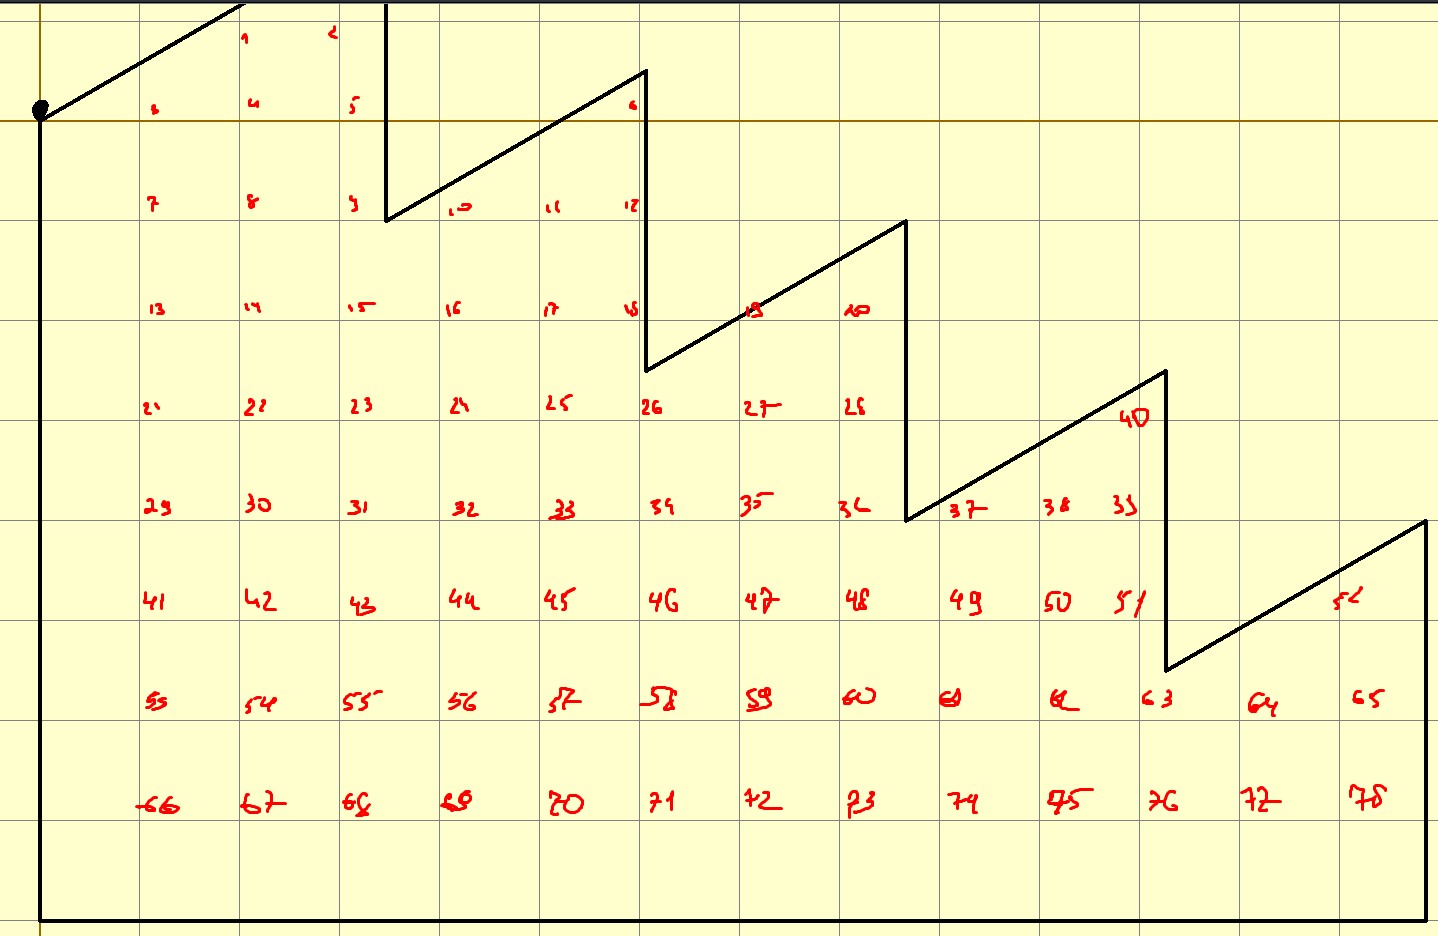 1 2
3 4 5 6
7 8 9 10 11 12
13 14 15 16 17 18 19 20
21 22 23 24 25 26 27 28
40
29 30 31 32 33 34 35 36 37 38 39
41 42 43 44 45 46 47 48 49 50 51 52
53 54 55 56 57 58 59 60 61 62 63 64 65
66 67 68 69 70 71 72 73 74 75 76 77 78